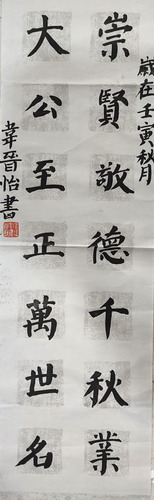 歲在壬寅秋月
崇賢敬德千秋業
大公至正萬世名
韋晉怡書